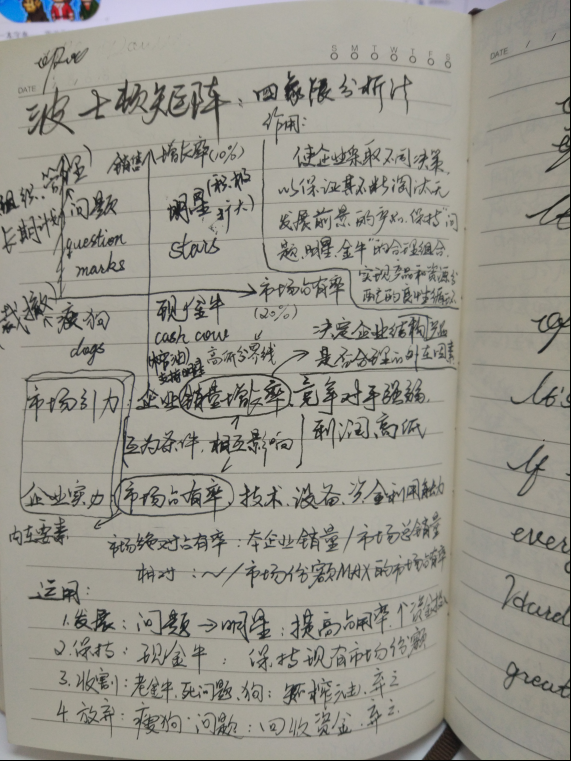 DATE
S M T W T F S
DATE / /
波士顿矩阵：四象限分析法
作用：
销售增长率(10%)
使企业采取不同决策，
以保证其不断淘汰无
发展前景的产品，保持"问
题、明星、金牛"的合理组合，
实现产品和资源分
配的良性循环
长期计划
问题
question
marks
明星(积极
扩大)
stars
市场占有率
(20%)
瘦狗
dogs
现金牛
cash cow
高低分界线
决定企业结构
是否合理的外在因素
市场引力：企业销量增长率，竞争对手强弱，
利润高低
互为条件，相互影响
企业实力：市场占有率，技术、设备、资金利用能力
内在要素
市场绝对占有率：本企业销量/市场总销量
相对：～/市场份额MAX的市场占有率
运用：
1.发展：问题→明星：提高占用率，
2.保持：现金牛：保持现有市场份额
3.收割：老金牛、死问题、狗：
4.放弃：瘦狗、问题：回收资金，弃之
great